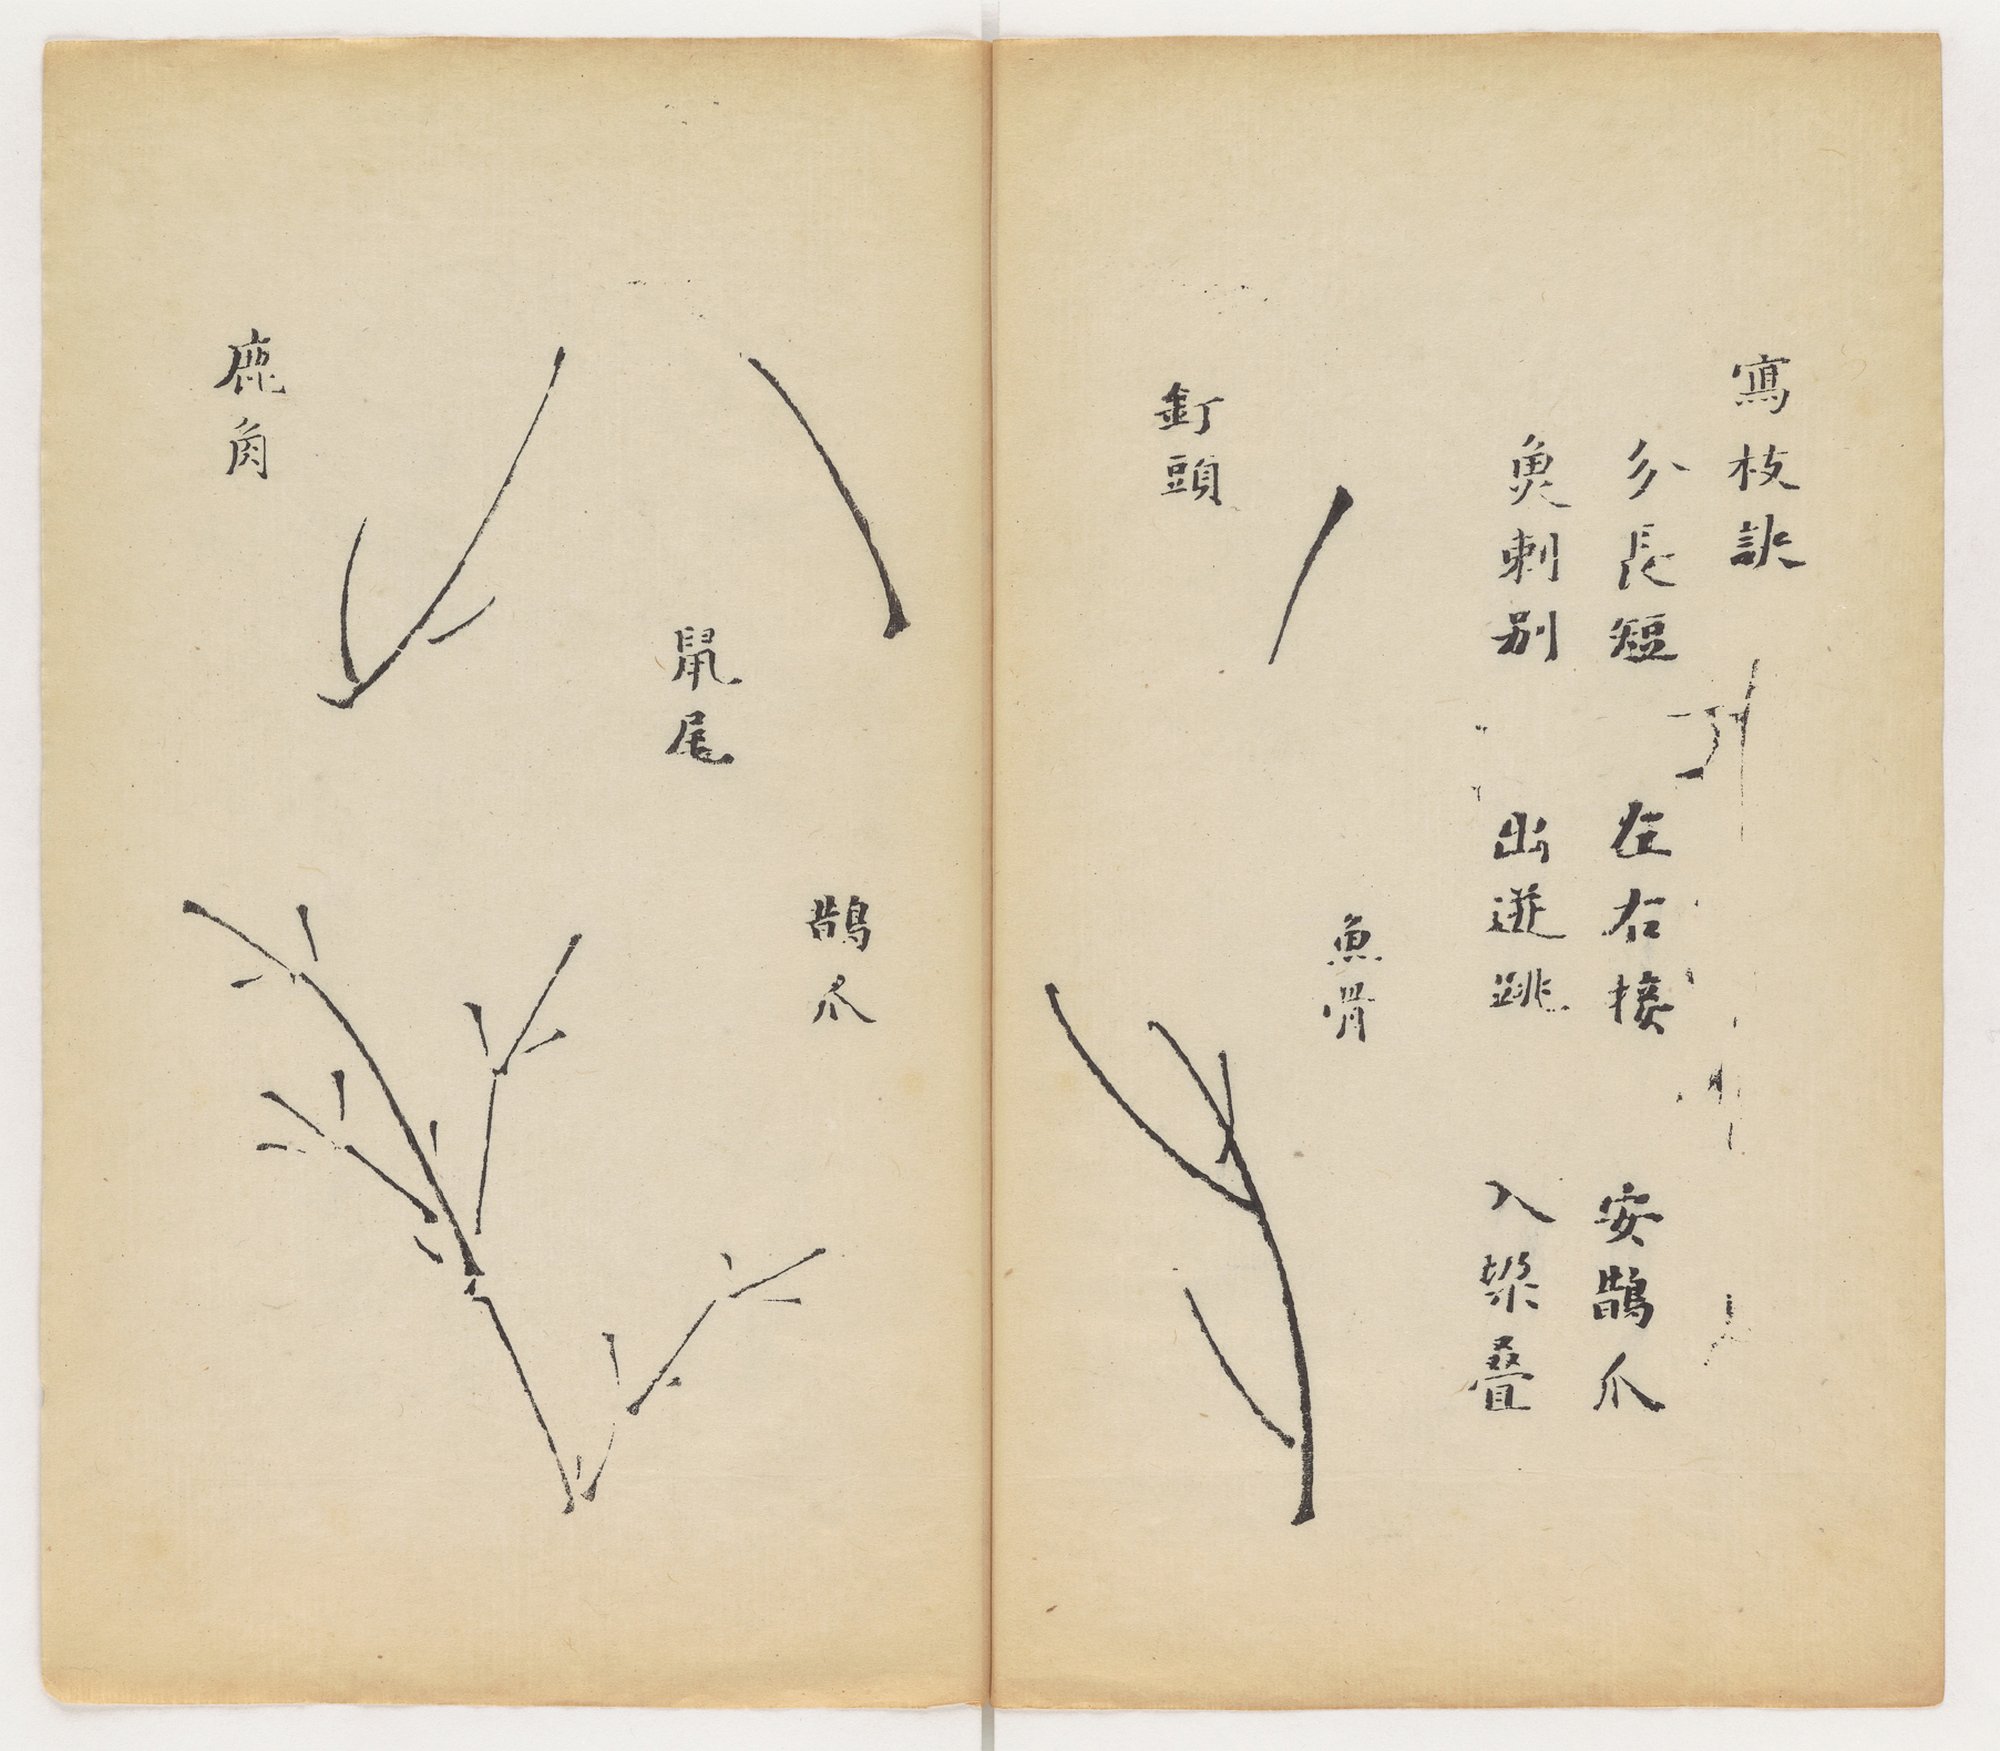 寫枝訣
分長短 左右接 安鵲爪
魚刺别 出迸跳 入梁疊
釘頭
魚骨
鼠尾
鵲爪
鹿角